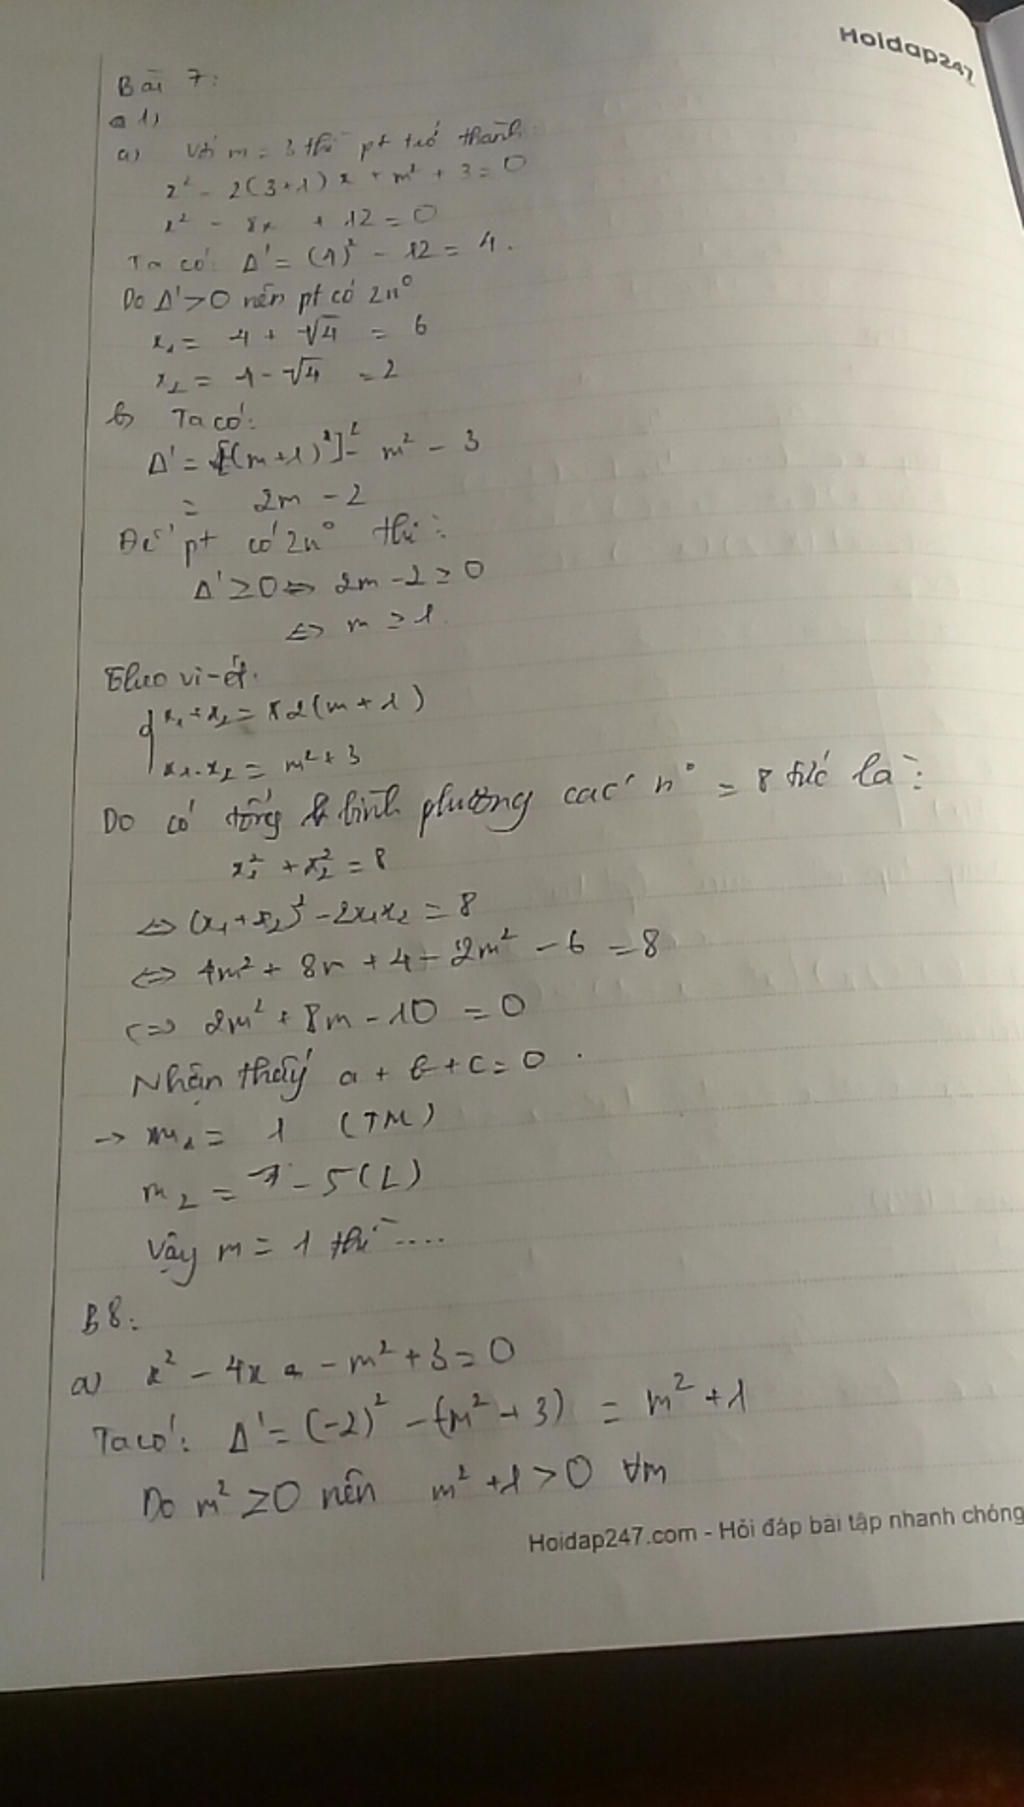 Hoidap247
Bài 7:
a 1)
a) Với m = 3 thì pt trở thành
x² - 2(3+1)x + m² + 3 = 0
x² - 8x + 12 = 0
Ta có: Δ' = (4)² - 12 = 4.
Do Δ' > 0 nên pt có 2n⁰
x₁ = 4 + √4 = 6
x₂ = 4 - √4 = 2
b) Ta có:
Δ' = [(m+1)²]² - m² - 3
= 2m - 2
Để pt có 2n⁰ thì:
Δ' ≥ 0 ⇔ 2m - 2 ≥ 0
⇔ m ≥ 1
Theo vi-ét:
x₁ + x₂ = 2(m + 1)
x₁.x₂ = m² + 3
Do có tổng bình phương các n⁰ = 8 tức là:
x₁² + x₂² = 8
⇔ (x₁ + x₂)² - 2x₁x₂ = 8
⇔ 4m² + 8m + 4 - 2m² - 6 = 8
⇔ 2m² + 8m - 10 = 0
Nhận thấy a + b + c = 0.
→ m₁ = 1 (TM)
m₂ = - 5 (L)
Vậy m = 1 thì ....
B8:
a) x² - 4x - m² + 3 = 0
Ta có: Δ' = (-2)² - (-m² + 3) = m² + 1
Do m² ≥ 0 nên m² + 1 > 0 ∀m
Hoidap247.com - Hỏi đáp bài tập nhanh chóng